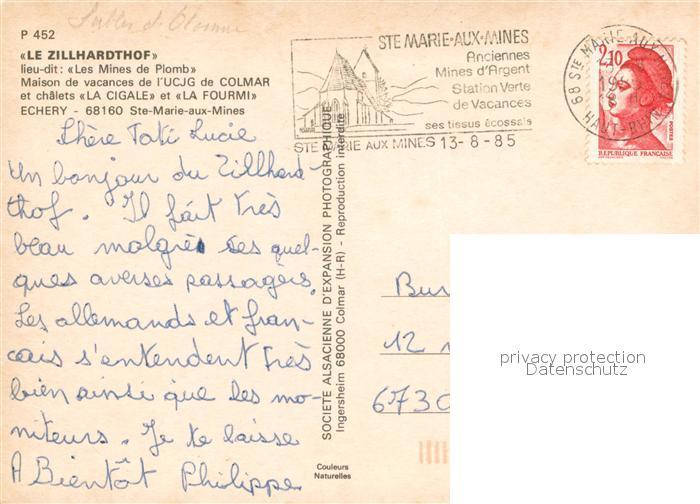 P 452
«LE ZILLHARDTHOF»
lieu-dit: «Les Mines de Plomb»
Maison de vacances de l'UCJG de COLMAR
et châlets «LA CIGALE» et «LA FOURMI»
ECHERY - 68160 Ste-Marie-aux-Mines
Chère Tati Lucie
Un bonjour du Zillhard-
thof. Il fait très
beau malgrés ses quel-
ques averses passagérs.
Les allemands et fran-
cais s'entendent très
bien ainsi que les mo-
niteurs. Je te laisse
A Bientôt Philippe
SOCIETE ALSACIENNE D'EXPANSION PHOTOGRAPHIQUE
Ingersheim 68000 Colmar (H-R) - Reproduction interdite
Couleurs
Naturelles
STE MARIE-AUX-MINES
Anciennes
Mines d'Argent
Station Verte
de Vacances
ses tissus écossais
STE MARIE AUX MINES 13-8-85
68 STE MARIE AUX
HAUT-RHIN
2,10
REPUBLIQUE FRANÇAISE
Bur
12
6730
privacy protection
Datenschutz